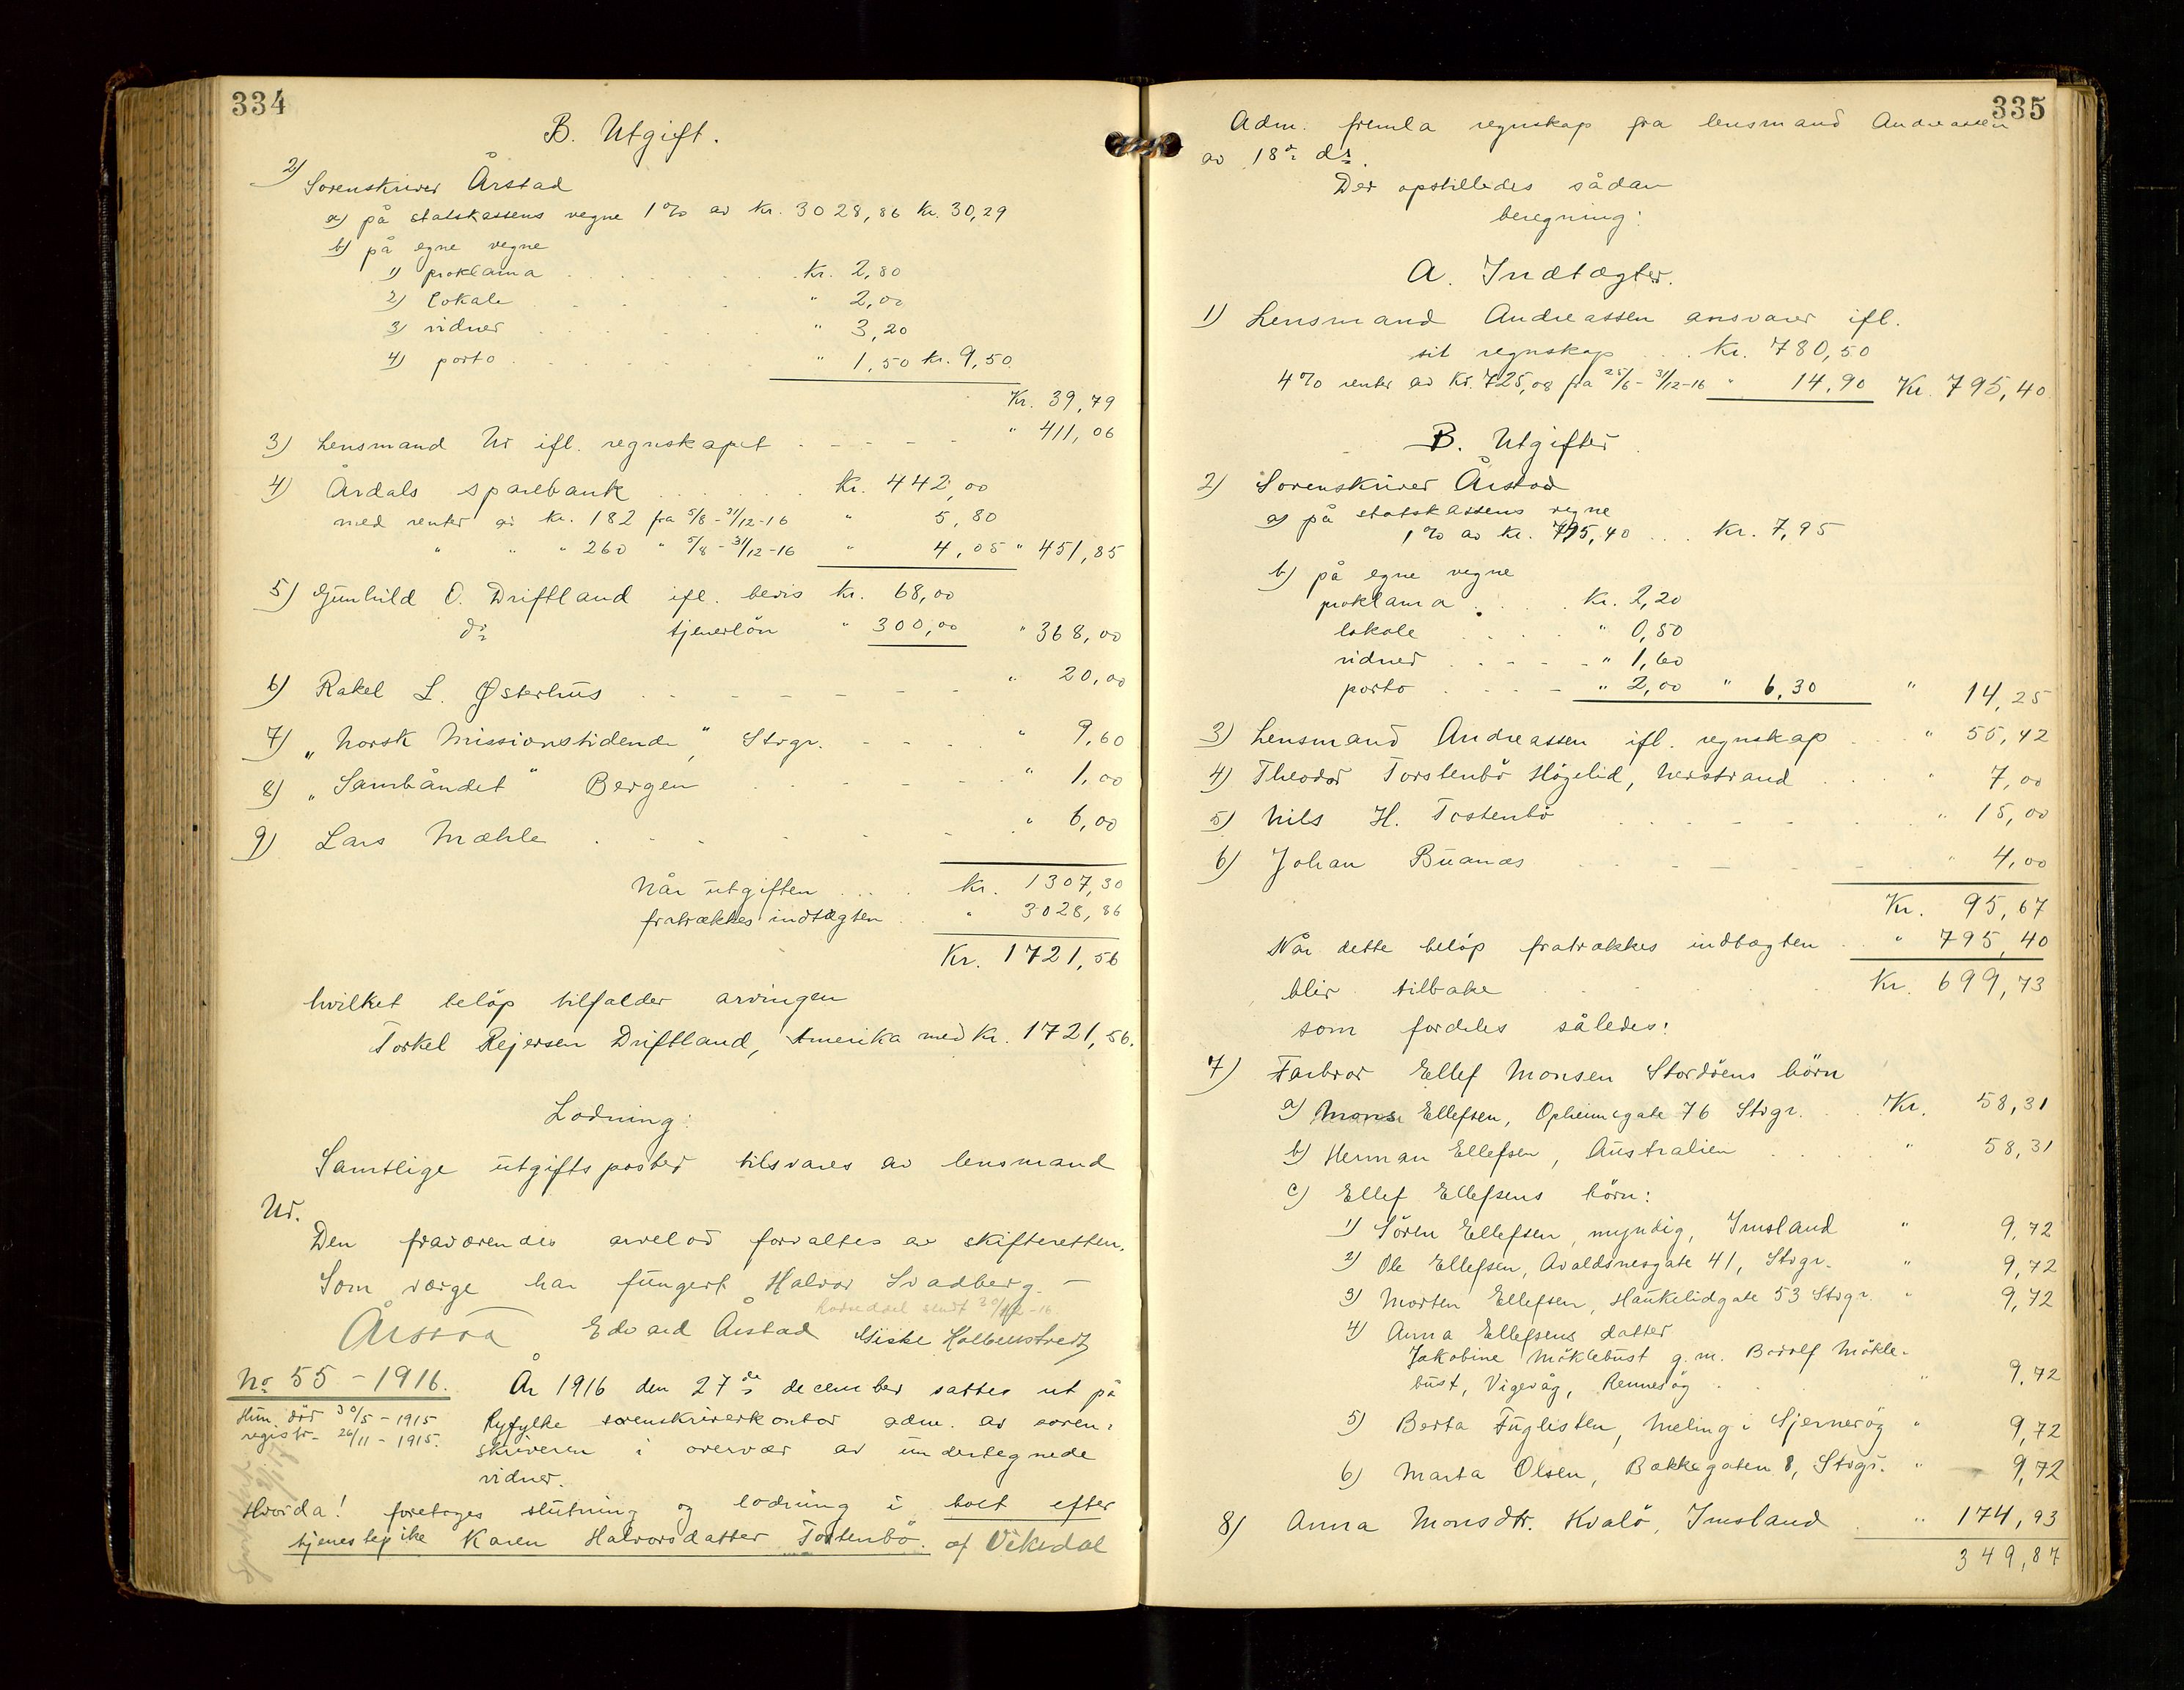 334
B. Utgift.
2) Sorenskriver Årstad
a) på statskassens vegne 1% av Kr. 3028,86 Kr. 30,29
b) på egne vegne
1) proklama . . . . . Kr. 2,80
2) lokale . . . . . " 2,00
3) vidner . . . . . " 3,20
4) porto . . . . . " 1,50 Kr. 9,50
Kr. 39,79
3) Lensmand Ur ifl. regnskapet - - - - - " 411,06
4) Årdals sparebank . . . . . Kr. 442,00
med renter av Kr. 182 fra 5/8 - 31/12-16 " 5,80
" " " 260 " 5/8 - 31/12-16 " 4,05 " 451,85
5) Gunhild O. Driftland ifl. bevis Kr. 68,00
do tjenerlön " 300,00 " 368,00
6) Rakel L. Østerhus - - - - - - " 20,00
7) "Norsk Missionstidende," Stvgr. - - - . " 9,60
8) "Sambåndet" Bergen . . . - - . " 1,00
9) Lars Mæhle . . . . - . " 6,00
Når utgiften . . . Kr. 1307,30
fratrækkes indtægten . . " 3028,86
Kr. 1721,56
hvilket belöp tilfalder arvingen
Torkel Rejersen Driftland, Amerika med Kr. 1721,56.
Lodning:
Samtlige utgiftsposter tilsvares av lensmand
Ur.
Den fraværendes arvelod forvaltes av skifteretten.
Som værge har fungert Halvor Svadberg. -
sendt 30/12-16.
Årstad Edvard Årstad
No 55 - 1916. År 1916 den 27de december sattes ret på
Hun död 30/5 - 1915 Ryfylke sorenskriverkontor adm. av soren-
registr. 26/11 - 1915. skriveren i overvær av undertegnede
vidner.
Hvorda! foretoges slutning og lodning i boet efter
tjenestepike Karen Halvorsdatter Tostenbö. af Vikedal
335
Adm. fremla regnskap fra lensmand Andreassen
av 18de ds.
Der opstilledes sådan
beregning:
A. Indtægter.
1) Lensmand Andreassen ansvarer ifl.
sit regnskap . . Kr. 780,50
4% renter av Kr. 725,08 fra 25/6 - 31/12-16 " 14,90 Kr. 795,40
B. Utgifter.
2) Sorenskriver Årstad
a) på statskassens vegne
1% av Kr. 795,40 . . . Kr. 7,95
b) på egne vegne
proklama . . . . Kr. 2,20
lokale . . . . " 0,50
vidner . - - - - " 1,60
porto . - - - " 2,00 " 6,30 " 14,25
3) Lensmand Andreassen ifl. regnskap . . " 55,42
4) Theodor Torstenbö Högelid, Nerstrand . . . " 7,00
5) Nils H. Tostenbö . . . - - - . . " 15,00
6) Johan Buanæs . . - - - - . " 4,00
Kr. 95,67
Når dette belöp fratrækkes indtægten . . " 795,40
blir tilbake . . . . . Kr. 699,73
som fordeles således:
7) Farbror Ellef Monsen Stordöens börn
a) Mons Ellefsen, Opheimsgate 76 Stvgr. . . Kr. 58,31
b) Herman Ellefsen, Australien . . . . " 58,31
c) Ellef Ellefsens börn:
1) Sören Ellefsen, myndig, Imsland " 9,72
2) Ole Ellefsen, Avaldsnesgate 41, Stvgr. " 9,72
3) Morten Ellefsen, Haukelidgate 53 Stvgr. " 9,72
4) Anna Ellefsens datter
Jakobine Möklebust g.m. Bodolf Mökle-
bust, Vigevåg, Rennesöy . . . " 9,72
5) Berta Fuglesten, Meling i Sjerneröy " 9,72
6) Marta Olsen, Bakkegaten 8, Stvgr. " 9,72
8) Anna Monsdtr. Kvalö, Imsland . " 174,93
349,87